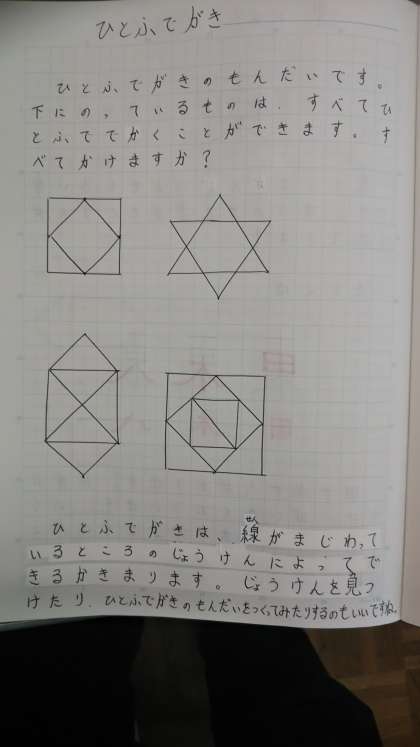 ひとふでがき
ひとふでがきのもんだいです。
下にのっているものは、すべてひ
とふででかくことができます。す
べてかけますか？
ひとふでがきは、線がまじわって
せん
いるところのじょうけんによってで
きるかきまります。じょうけんを見つ
けたり、ひとふでがきのもんだいをつくってみたりするのもいいですね。